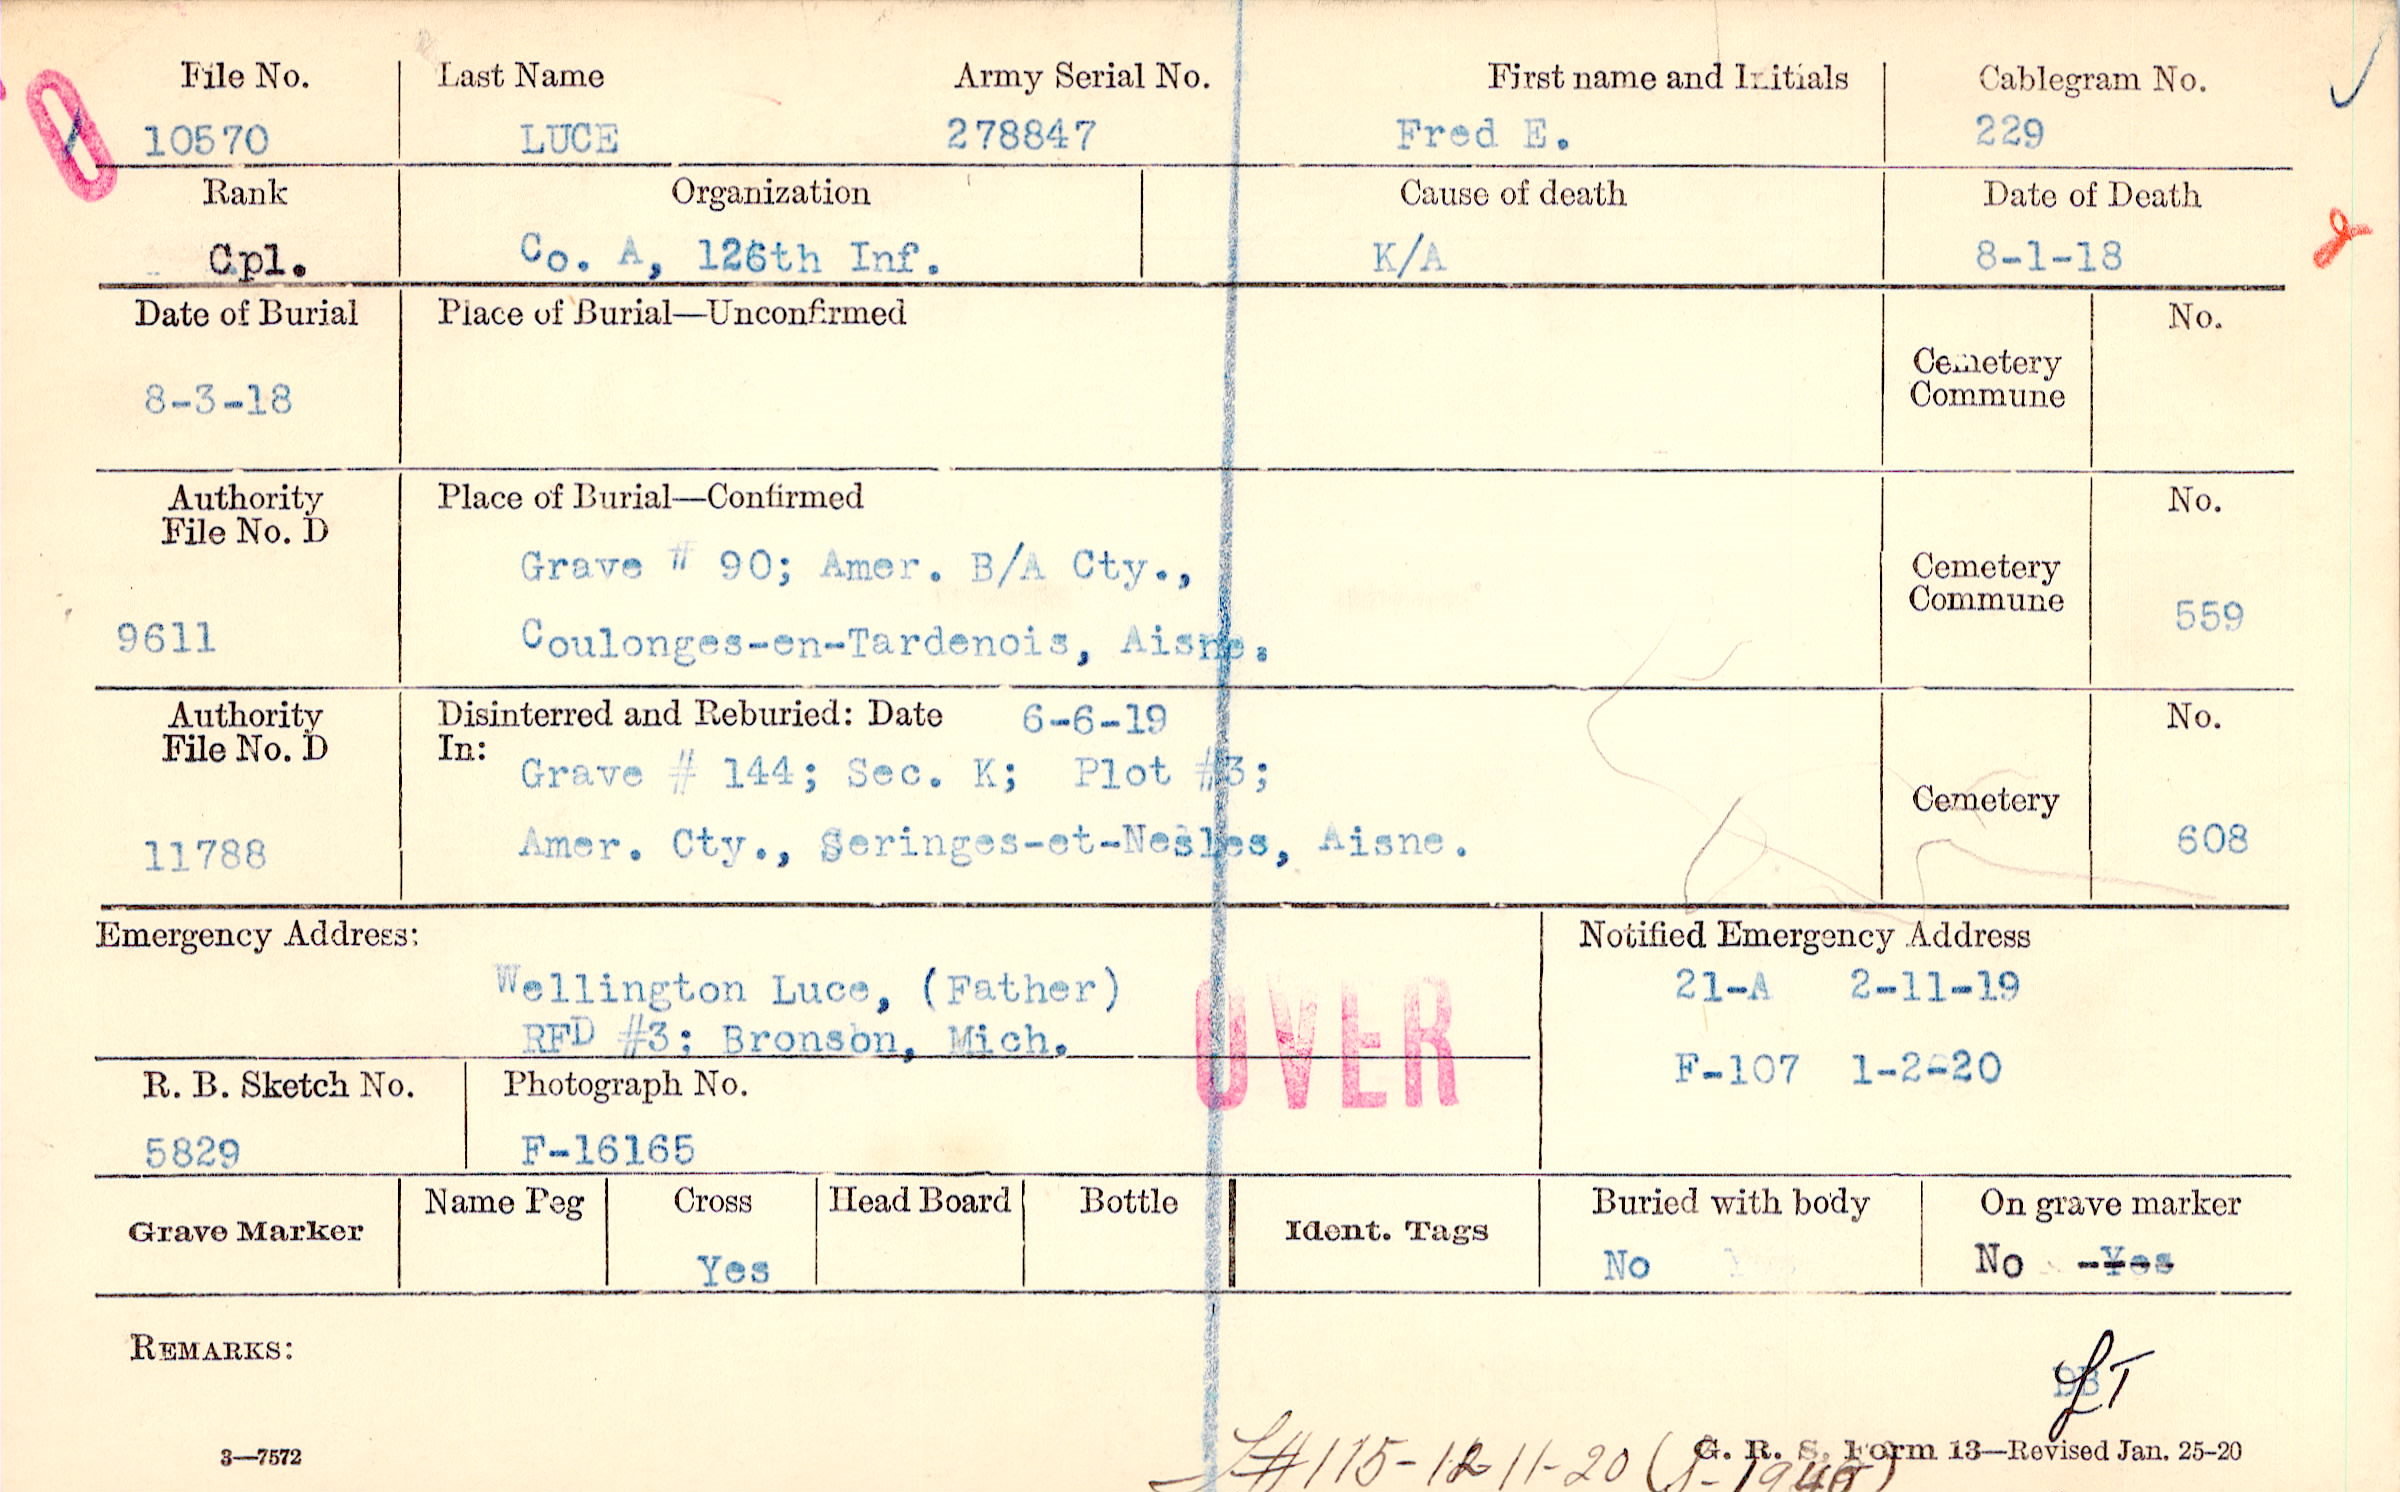 File No. Last Name Army Serial No. First name and Initials Cablegram No.
10570 LUCE 278847 Fred E. 229
Rank Organization Cause of death Date of Death
Cpl. Co. A, 126th Inf. K/A 8-1-18
Date of Burial Place of Burial—Unconfirmed No.
8-3-18 Cemetery
Commune
Authority Place of Burial—Confirmed No.
File No. D
Grave # 90; Amer. B/A Cty., Cemetery
Commune 559
9611 Coulonges-en-Tardenois, Aisne.
Authority Disinterred and Reburied: Date 6-6-19 No.
File No. D In:
Grave # 144; Sec. K; Plot #3; Cemetery
11788 Amer. Cty., Seringes-et-Nesles, Aisne. 608
Emergency Address: Notified Emergency Address
Wellington Luce, (Father) 21-A 2-11-19
RFD #3; Bronson, Mich. OVER
F-107 1-2-20
R. B. Sketch No. Photograph No.
5829 F-16165
Grave Marker Name Peg Cross Head Board Bottle Ident. Tags Buried with body On grave marker
Yes No No -Yes
REMARKS:
LT
3—7572 G. R. S. Form 13—Revised Jan. 25-20
#115-12-11-20